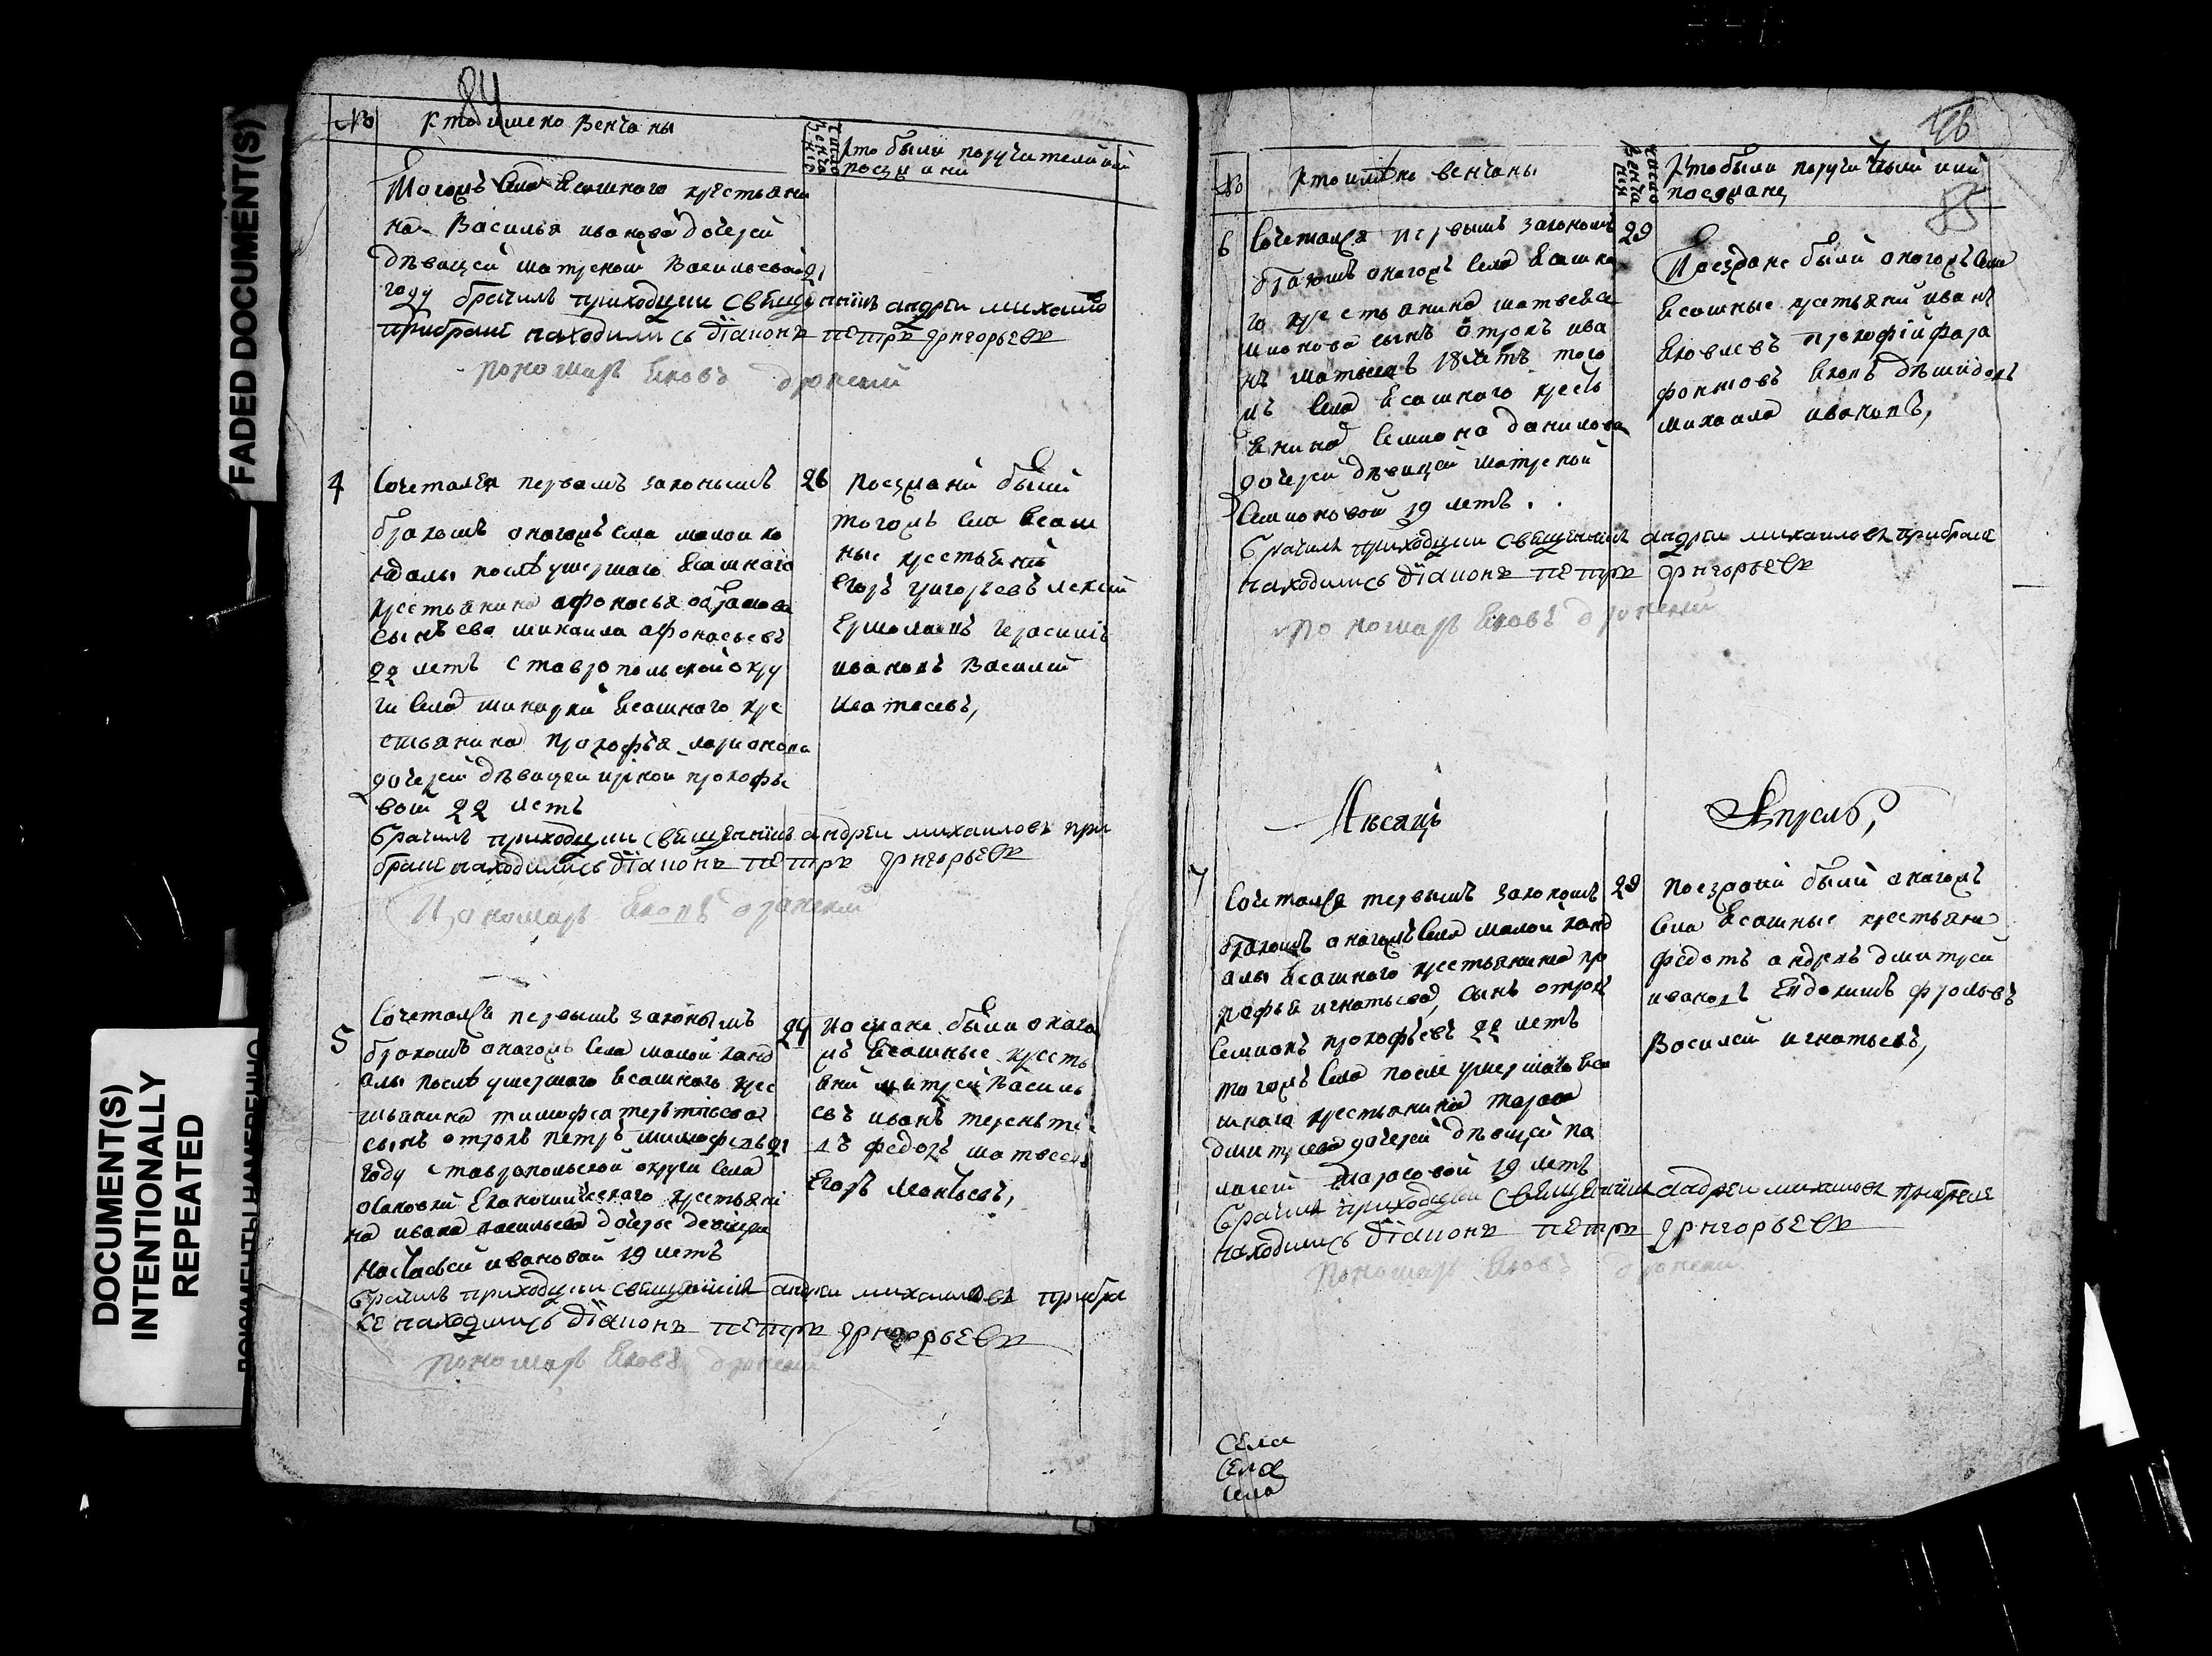 84
№ Кто имено венчаны
Число венчания
Кто были поручители или поезжани
Тогожъ села ясашного крестьяни
на Василья иванова дочерей
дѣвицей матреной Васильевой 21
году брачилъ приходцки свещеникъ андреи михаило
прибраке находились дїаконъ петръ григорьевъ
пономарь яковъ
4
Сочетался первымъ законымъ
26
бракомъ онагожъ села малой ка
ндалы послѣ умершаго ясашнаго
крестьянина афонасья абрамова
сынъ ево михаила афонасьевъ
22 летъ ставропольской окру
ги села ясашного кре
стьянина прокофья ларионова
дочерей дѣвицей ириной прокофье
вой 22 летъ
брачилъ приходцки свещеникъ андреи михаиловъ при
браке находились дїаконъ петръ григорьевъ
Пономарь яковъ
поезжани были
тогожъ села ясаш
ные крестьяни
егоръ григорьевъ лексей
ермолаевъ герасимъ
ивановъ василей
игнатьевъ,
5
Сочетался первымъ законымъ
бракомъ онагожъ села малой канд
алы послѣ умершаго ясашнаго крес
тьянина тимофея терентьева
сынъ отрокъ петръ тимофеевъ 21
году ставропольской округи села
економического крестьяни
на ивана васильева дочерью девицею
настасьей ивановой 19 летъ
брачилъ приходцки свещеникъ андреи михаиловъ прибра
ке находились дїаконъ петръ григорьевъ
пономарь яковъ
поезжане были онаго
жъ ясашные кресть
яни митрей василь
евъ иванъ терентье
въ федоръ матвеевъ
егоръ леонтьевъ,
85
№ Кто имѣно венчаны
Число венчания
Кто были поручители или поезжане,
6
Сочетался первымъ закономъ
29
бракомъ онагожъ села ясашна
го крестьянина матвея се
мионова сынъ отрокъ ива
нъ матвеевъ 18 летъ того
жъ села ясашного кресть
янина семиона данилова
дочерей дѣвицей матреной
семионовой 19 летъ.
брачилъ приходцки свещеникъ андреи михаиловъ прибраке
находились дїаконъ петръ григорьевъ
пономарь яковъ
Поезжане были онагожъ села
ясашные крестьяни иванъ
яковлевъ прокофій
михаила ивановъ,
Мѣсяцъ Апрель,
7
Сочетался первымъ закономъ
29
бракомъ онагожъ села малой канд
алы ясашного крестьянина про
кофья игнатьева, сынъ отрокъ
семионъ прокофьевъ 22 летъ
тогожъ села после умершаго яса
шнаго крестьянина тараса
дмитрева дочерей дѣвицей па
лагей тарасовой 19 летъ
брачилъ приходцки свещеникъ андреи михаиловъ прибраке
находились дїаконъ петръ григорьевъ
пономарь яковъ
поезжани были онагожъ
села ясашные крестьяни
федотъ дмитрей
ивановъ евдокимъ фроловъ
василей игнатьевъ,
Села
Села
Села
FADED DOCUMENT(S)
DOCUMENT(S)
INTENTIONALLY
REPEATED